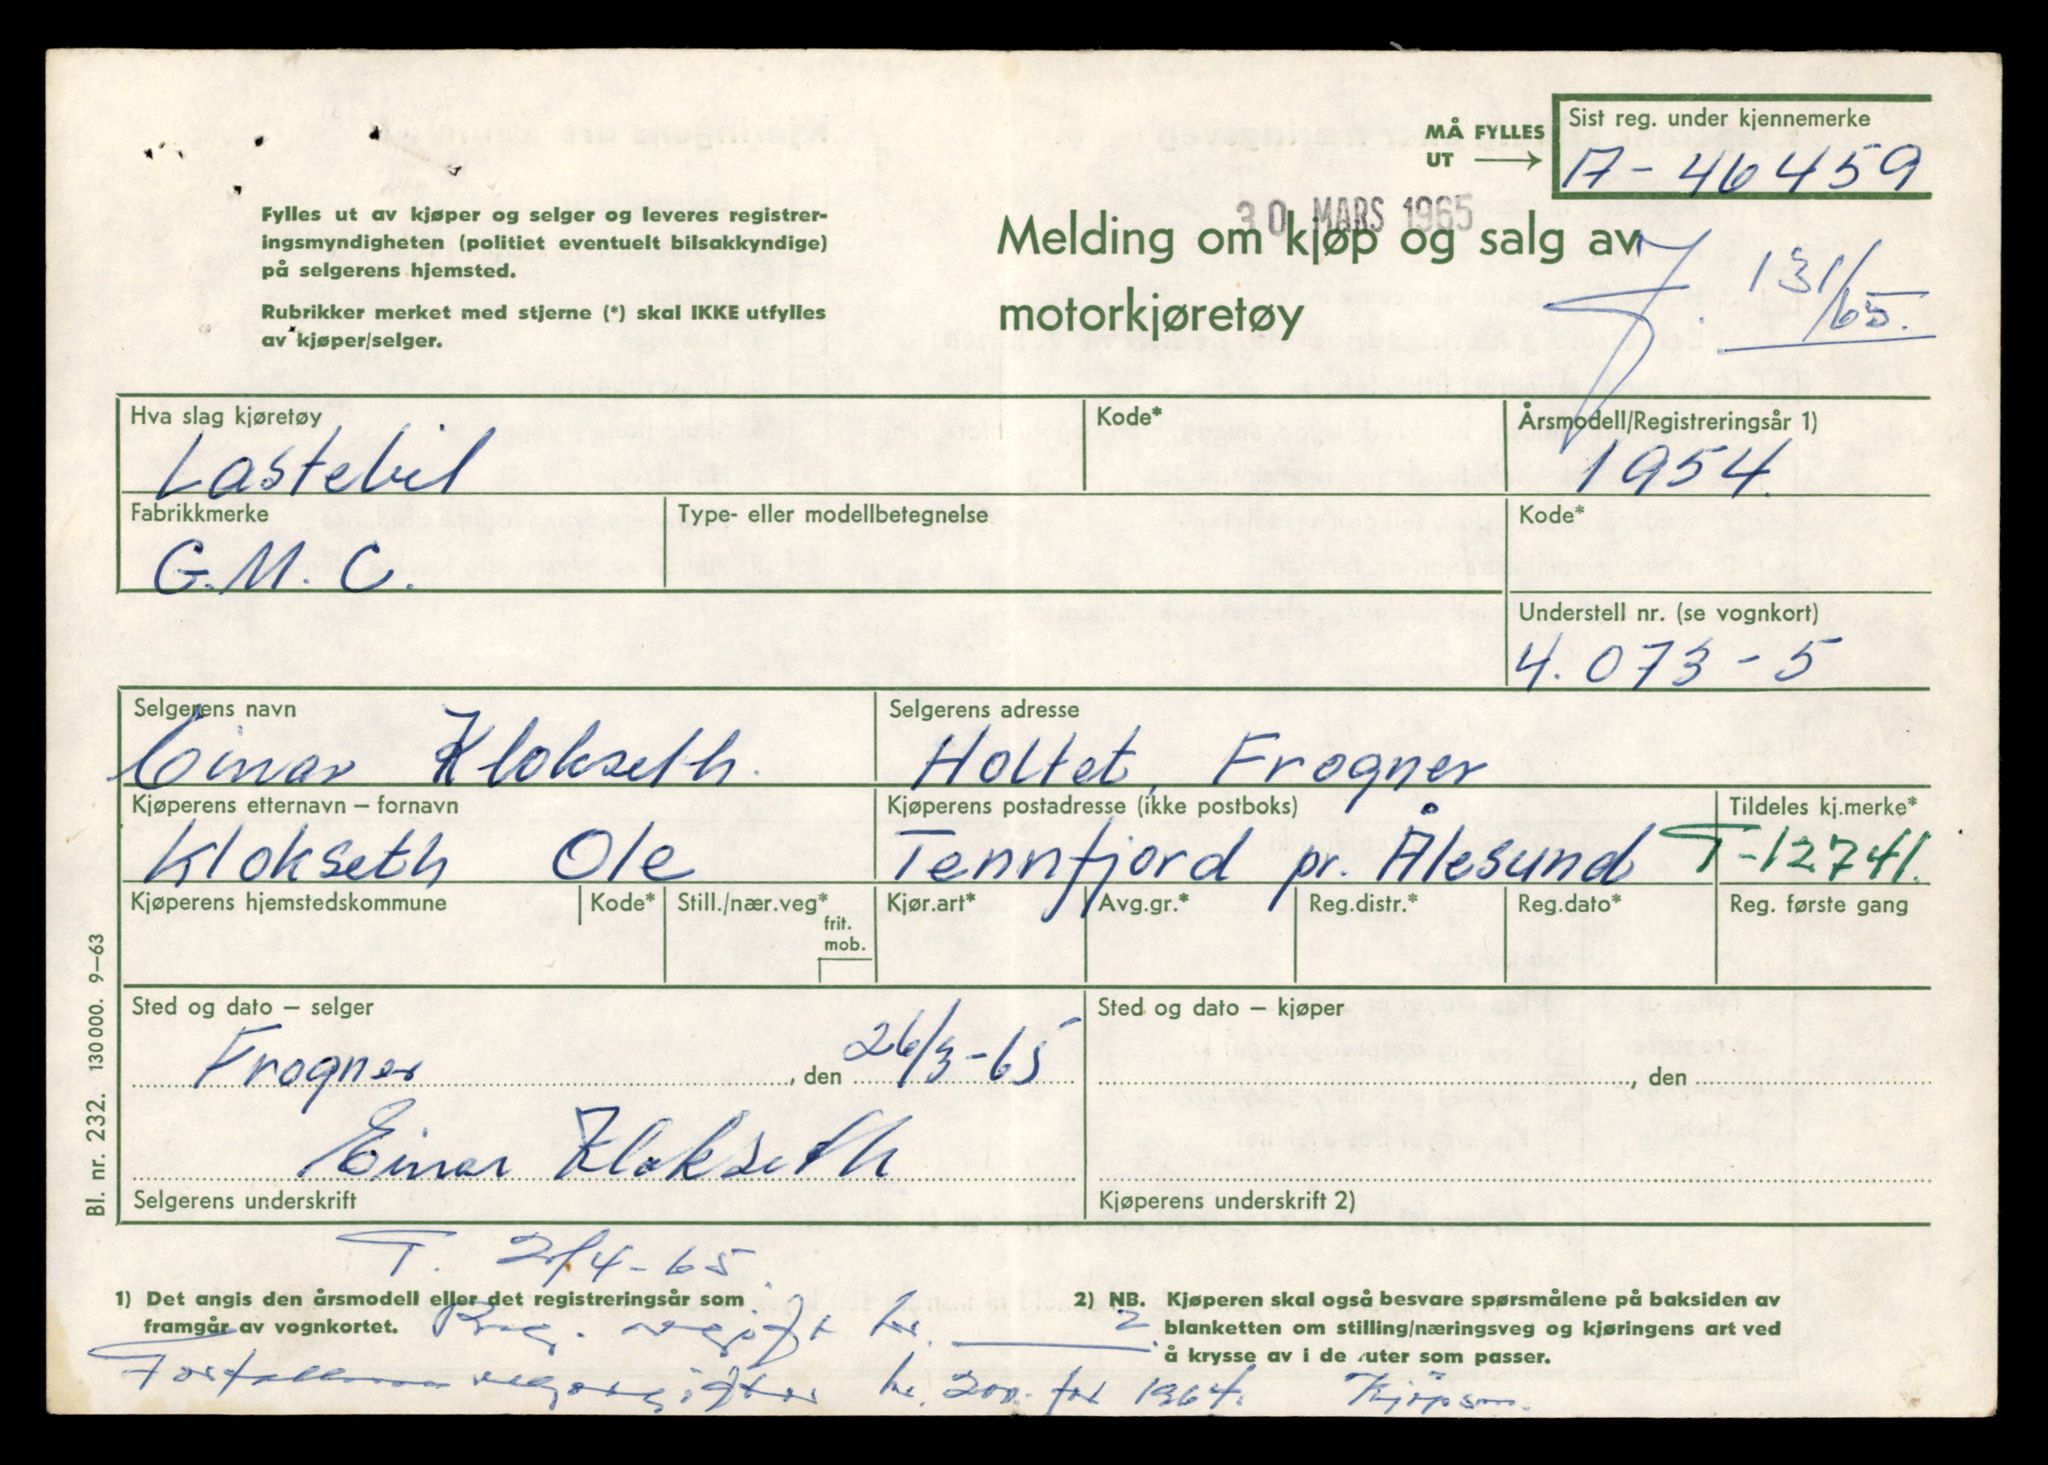 MÅ FYLLES
UT
Sist reg. under kjennemerke
A-46459
30 MARS 1965
Fylles ut av kjøper og selger og leveres registrer-
ingsmyndigheten (politiet eventuelt bilsakkyndige)
på selgerens hjemsted.
Rubrikker merket med stjerne (*) skal IKKE utfylles
av kjøper/selger.
Melding om kjøp og salg av
motorkjøretøy
J. 131/65.
Hva slag kjøretøy
Lastebil
Kode*
Årsmodell/Registreringsår 1)
1954.
Fabrikkmerke
G.M.C.
Type- eller modellbetegnelse
Kode*
Understell nr. (se vognkort)
4.073-5
Selgerens navn
Einar Klokseth.
Selgerens adresse
Holtet, Frogner
Kjøperens etternavn – fornavn
Klokseth Ole
Kjøperens postadresse (ikke postboks)
Tennfjord pr. Ålesund
Tildeles kj.merke*
T-12741.
Kjøperens hjemstedskommune
Kode*
Still./nær.veg*
frit.
mob.
Kjør.art*
Avg.gr.*
Reg.distr.*
Reg.dato*
Reg. første gang
Sted og dato – selger
Frogner, den 26/3-65
Einar Klokseth
Selgerens underskrift
Sted og dato – kjøper
, den
Kjøperens underskrift 2)
Bl. nr. 232. 130 000. 9–63
T. 2/4-65.
1) Det angis den årsmodell eller det registreringsår som
framgår av vognkortet.
2) NB. Kjøperen skal også besvare spørsmålene på baksiden av
blanketten om stilling/næringsveg og kjøringens art ved
å krysse av i de ruter som passer.
Reg. avgift kr. 2
kr. 200.- for 1964.